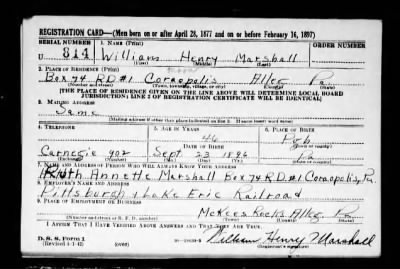 REGISTRATION CARD—(Men born on or after April 28, 1877 and on or before February 16, 1897)
SERIAL NUMBER 1. NAME (Print) ORDER NUMBER
U 814 William Henry Marshall
(First) (Middle) (Last)
2. PLACE OF RESIDENCE (Print)
Box 74 RD#1 Coraopolis Alleg Pa
(Number and street) (Town, township, village, or city) (County) (State)
[THE PLACE OF RESIDENCE GIVEN ON THE LINE ABOVE WILL DETERMINE LOCAL BOARD
JURISDICTION; LINE 2 OF REGISTRATION CERTIFICATE WILL BE IDENTICAL]
3. MAILING ADDRESS
Same
[Mailing address if other than place indicated on line 2. If same insert word same]
4. TELEPHONE 5. AGE IN YEARS 6. PLACE OF BIRTH
46 Pgh
DATE OF BIRTH (Town or county)
Carnegie 902 Sept 23 1896 Pa
(Exchange) (Number) (Mo.) (Day) (Yr.) (State or country)
7. NAME AND ADDRESS OF PERSON WHO WILL ALWAYS KNOW YOUR ADDRESS
Ruth Annette Marshall Box 74 RD#1 Coraopolis, Pa
8. EMPLOYER'S NAME AND ADDRESS
Pittsburgh & Lake Erie Railroad
9. PLACE OF EMPLOYMENT OR BUSINESS
McKees Rocks Alleg Pa
(Number and street or R. F. D. number) (Town) (County) (State)
I AFFIRM THAT I HAVE VERIFIED ABOVE ANSWERS AND THAT THEY ARE TRUE.
D. S. S. Form 1
(Revised 4-1-42) (over) William Henry Marshall